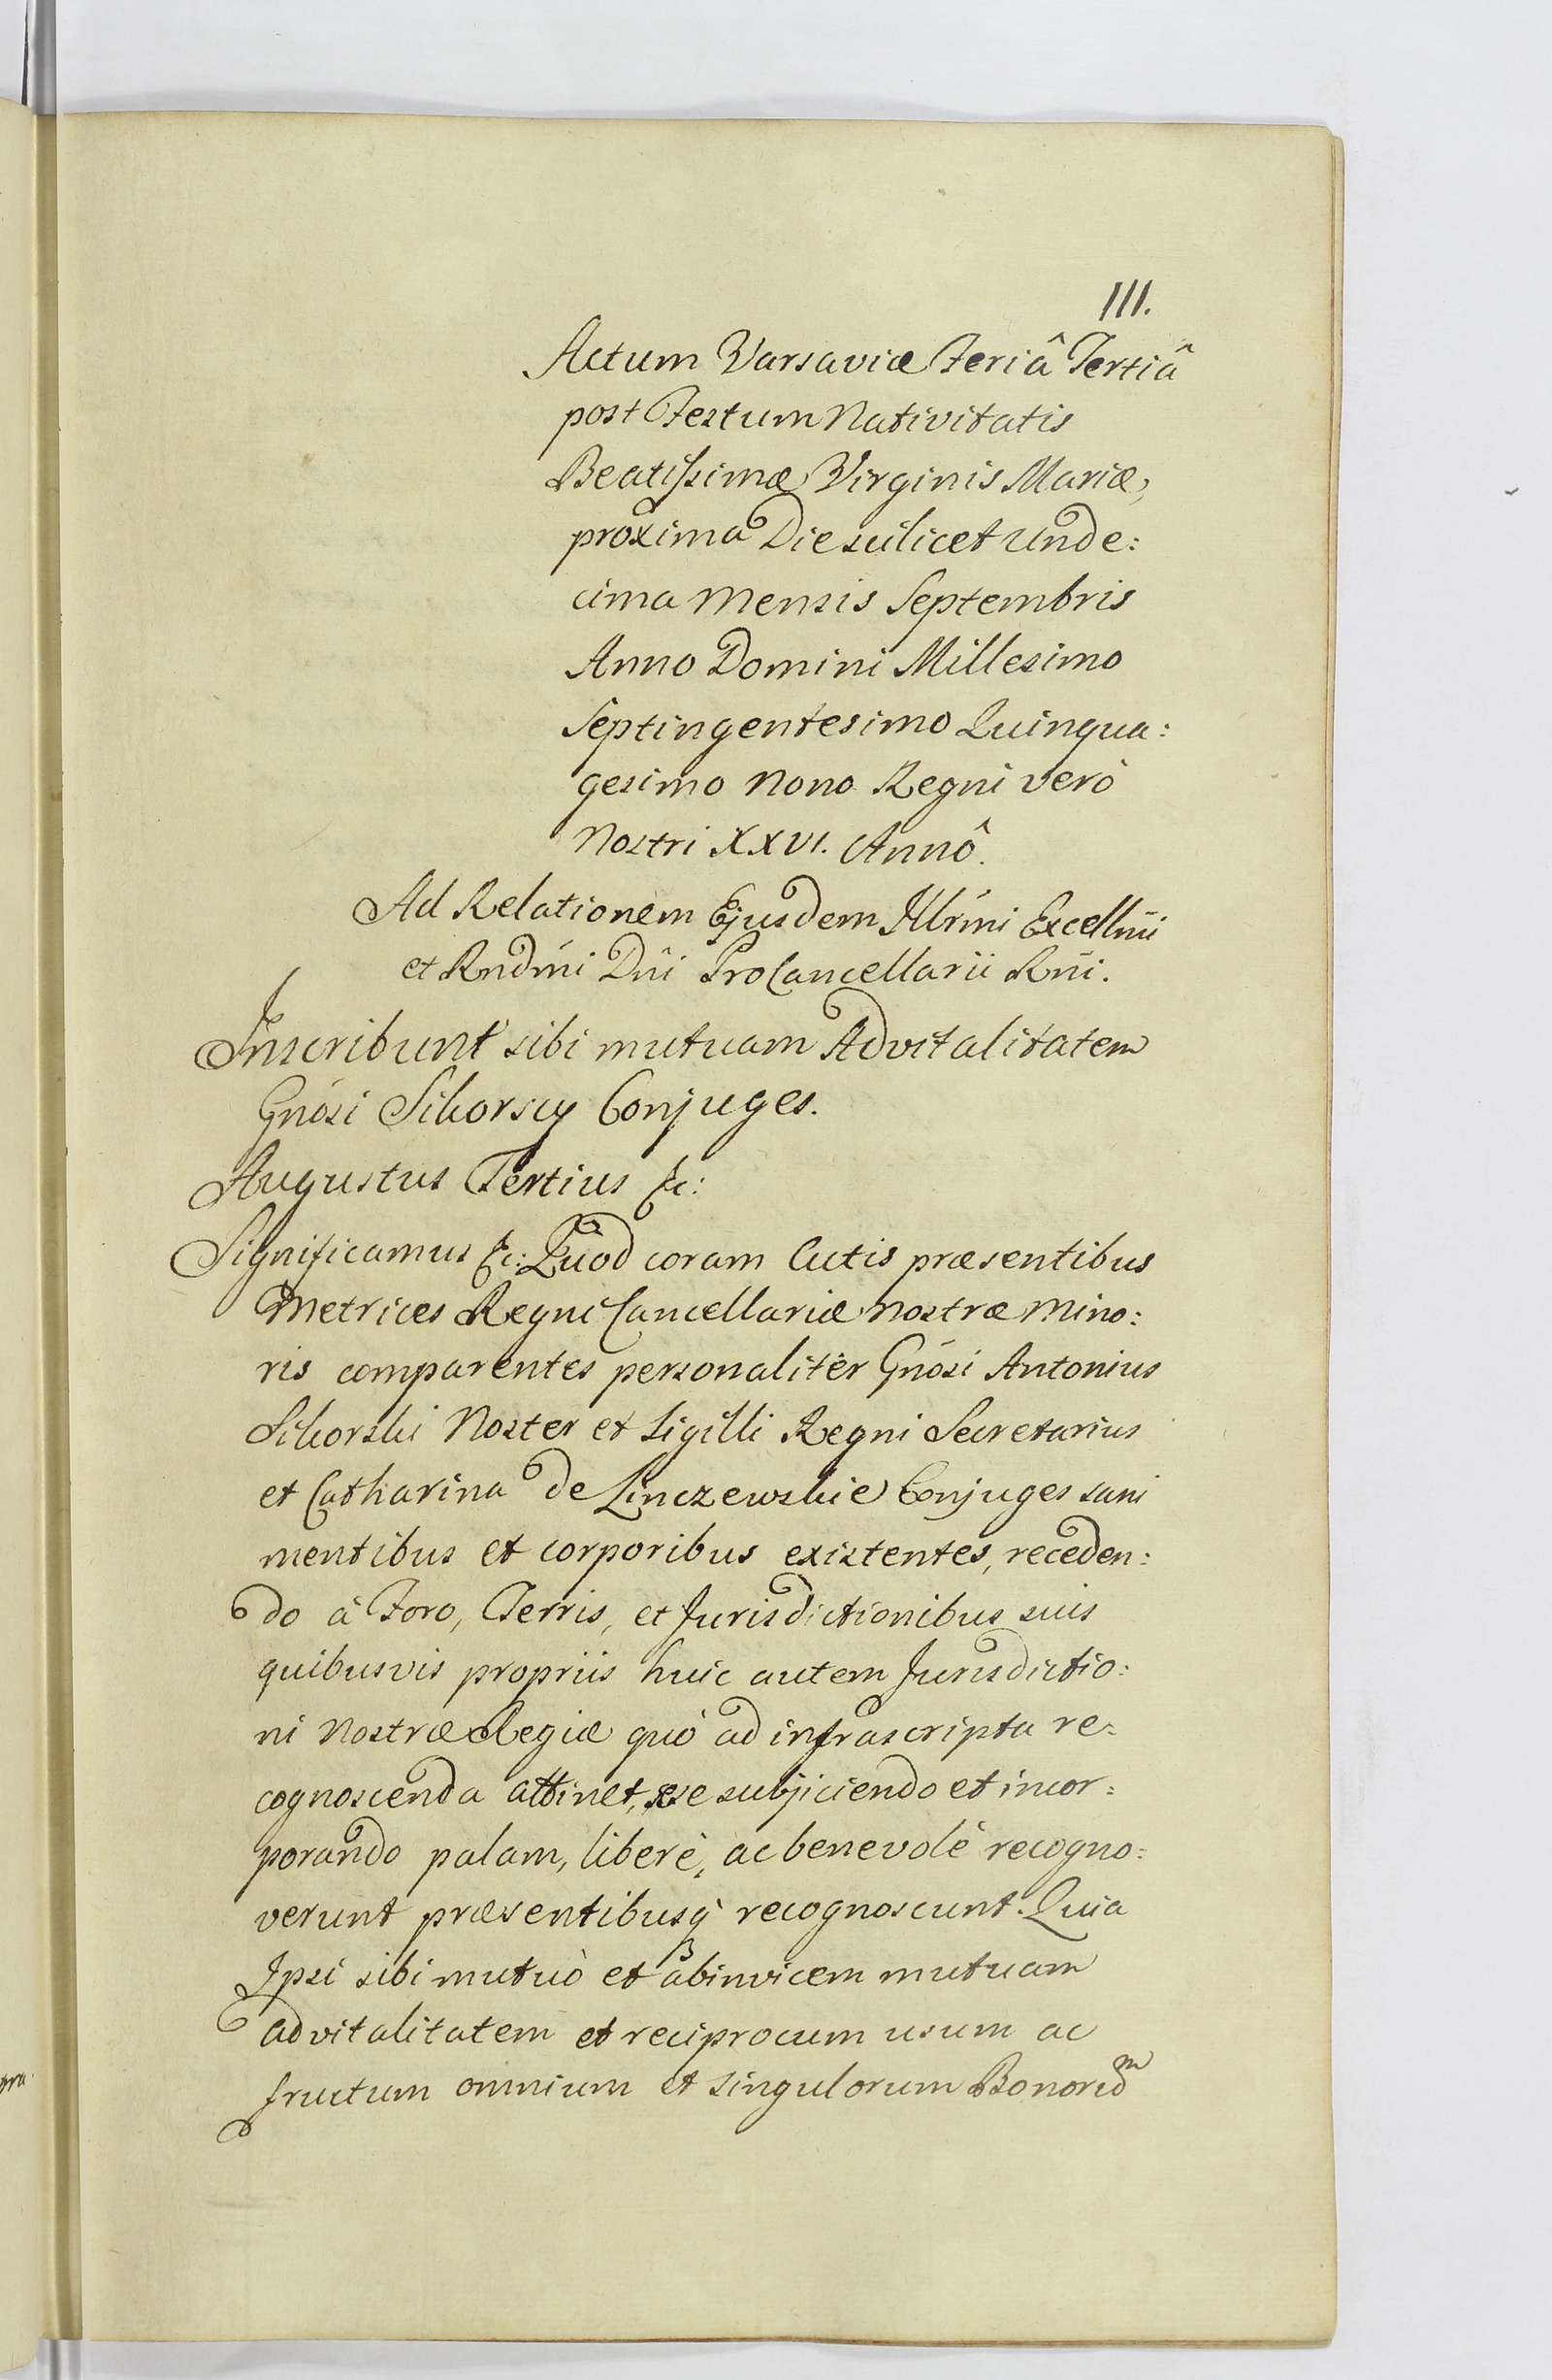 111.
Actum Varsaviæ Feriâ Tertiâ
post Festum Nativitatis
Beatissimæ Virginis Mariæ,
proxima Die scilicet Unde:
cima mensis Septembris
Anno Domini Millesimo
Septingentesimo Quinqua:
gesimo nono Regni verò
Nostri XXVI. Annô.
Ad Relationem Ejusdem Illrmi Excellmi
et Rndmi Dni ProCancellarii Rni.
Inscribunt sibi mutuam Advitalitatem
Gnosi Sikorscy Conjuges.
Augustus Tertius &c:
Significamus &c: Quod coram Actis præsentibus
Metrices Regni Cancellariæ nostræ mino:
ris comparentes personalitèr Gnosi Antonius
Sikorski Noster et Sigilli Regni Secretarius
et Catharina de Linczewskie Conjuges sani
mentibus et corporibus existentes, receden:
do à Foro, Terris, et Jurisdictionibus suis
quibusvis propriis huic autem Jurisdictio:
ni nostræ Regiæ quò ad infrascripta re:
cognoscenda attinet, sese subjiciendo et incor:
porando palam, liberè, ac benevolè recogno:
verunt præsentibusq́ recognoscunt. Quia
Ipsi sibi mutuò et abinvicem mutuam
advitalitatem et reciprocum usum ac
fructum omnium et singulorum Bonorum